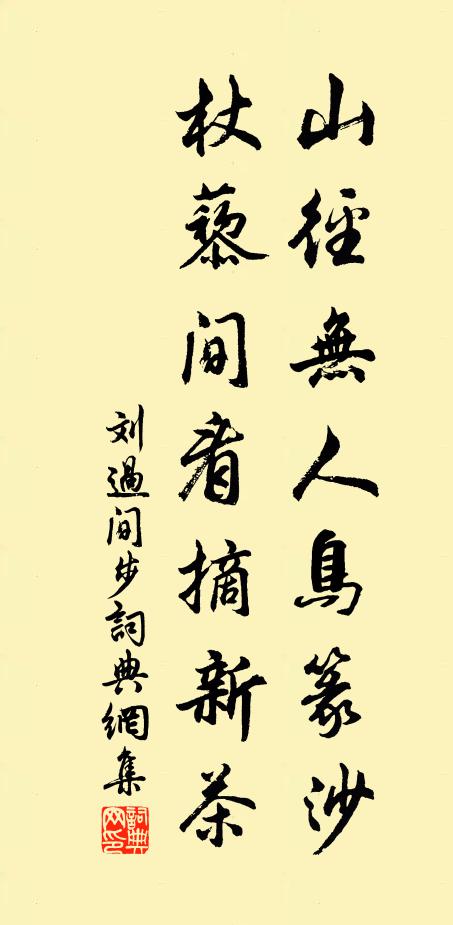 山徑無人鳥篆沙
杖藜间看摘新茶
刘過间步詞典網集
詞典网印